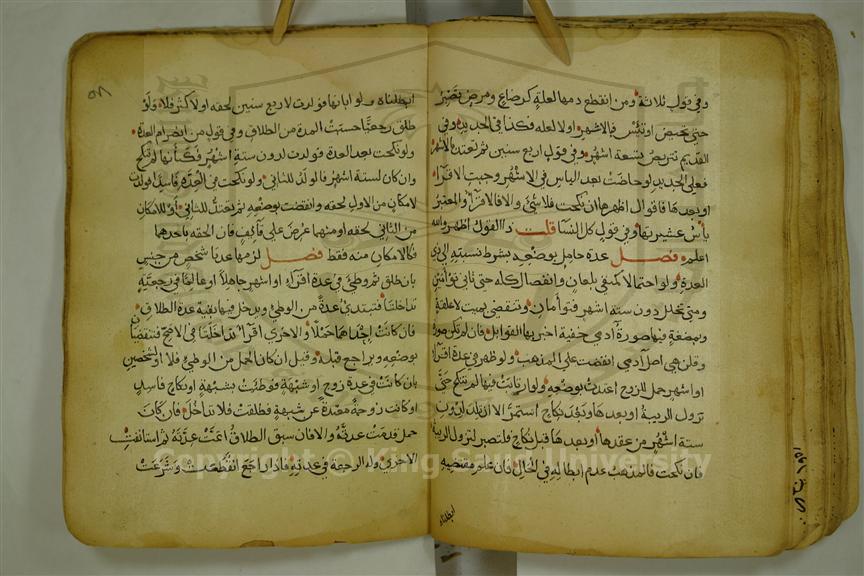 وفي قول ثلاثة ومن انقطع دمها لعلة كرضاع ومرض تصبر
حتى تحيض او تيئس فبالاشهر اولا لعلة فكذا في الجديد وفي
القديم تتربص تسعة اشهر وفي قول اربع سنين ثم تعتد بالاشهر
فعلى الجديد لو حاضت بعد الياس في الاشهر وجبت الاقراء
او بعدها فاقوال اظهرها ان نكحت فلا شئ والا فالاقراء والمعتبر
يأس عشيرتها وفي قول كل النساء قلت ذا القول اظهر والله
اعلم فصل عدة حامل بوضعه بشرط نسبته الى ذي
العدة ولو احتمالا كمنفي بلعان وانفصال كله حتى ثاني توأمين
ومتى تخلل دون ستة اشهر فتوأمان وتنقضي بميت لا علقة
وبمضغة فيها صورة آدمي خفية اخبر بها القوابل فان لم تكن صورة
وقلن هي اصل آدمي انقضت على المذهب ولو ظهر في عدة اقراء
او اشهر حمل للزوج اعتدت بوضعه ولو ارتابت فيها لم تنكح حتى
تزول الريبة او بعدها وبعد نكاح استمر الا ان تلد لدون
ستة اشهر من عقدها او بعدها قبل نكاح فلتصبر لتزول الريبة
فان نكحت فالمذهب عدم ابطاله في الحال فان علم مقتضيه
ابطلناه
ابطلناه ولو ابانها فولدت لاربع سنين لحقه اولا كثر فلا ولو
طلق رجعيا حسبت المدة من الطلاق وفي قول من انصرام العدة
ولو نكحت بعد العدة فولدت لدون ستة اشهر فكأنها لم تنكح
وان كان لستة اشهر فالولد للثاني ولو نكحت في العدة فاسدا فولدت
لامكان من الاول لحقه وانقضت بوضعه ثم تعتد للثاني او للامكان
من الثاني لحقه او منهما عرض على قائف فان الحقه باحدهما
فكالامكان منه فقط فصل لزمها عدتا شخص من جنس
بان طلق ثم وطئ في عدة اقراء او اشهر جاهلا او عالما في رجعية
تداخلتا فتبتدئ عدة من الوطئ ويدخل فيها بقية عدة الطلاق
فان كانت احداهما حملا والاخرى اقراء تداخلتا في الاصح فتنقضيان
بوضعه ويراجع قبله وقيل ان كان الحمل من الوطئ فلا او لشخصين
بان كانت في عدة زوج او شبهة فوطئت بشبهة او نكاح فاسد
او كانت زوجة معتدة عن شبهة فطلقت فلا تداخل فان كان
حمل قدمت عدته والا فان سبق الطلاق اتمت عدته ثم استانفت
الاخرى وله الرجعة في عدته فاذا راجع انقطعت وشرعت
Copyright © King Saud University